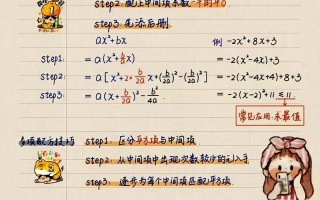 step2: 配上中间项系数一半的平方
step3: 先添后删
ax²+bx 例 -2x²+8x+3
step1: =a(x²+b/a x) =-2(x²-4x)+3
step2: =a[x²+2·b/2a x+(b/2a)²-(b/2a)²] =-2(x²-4x+4)+8+3
step3: =a(x+b/2a)²-b²/4a. =-2(x-2)²+11≤11.
常见应用:求最值
多项配方技巧 step1: 区分平方项与中间项
step2: 从中间项中出现次数较少的元入手
step3: 逐步为每个中间项匹配平方项.